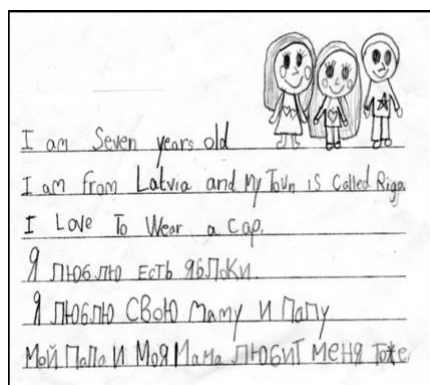 I am Seven years old
I am from Latvia and My Toun is Called Riga.
I Love To Wear a Cap.
Я люблю есть яблоки.
Я люблю свою маму и папу
Мой папа и моя мама любит меня тоже